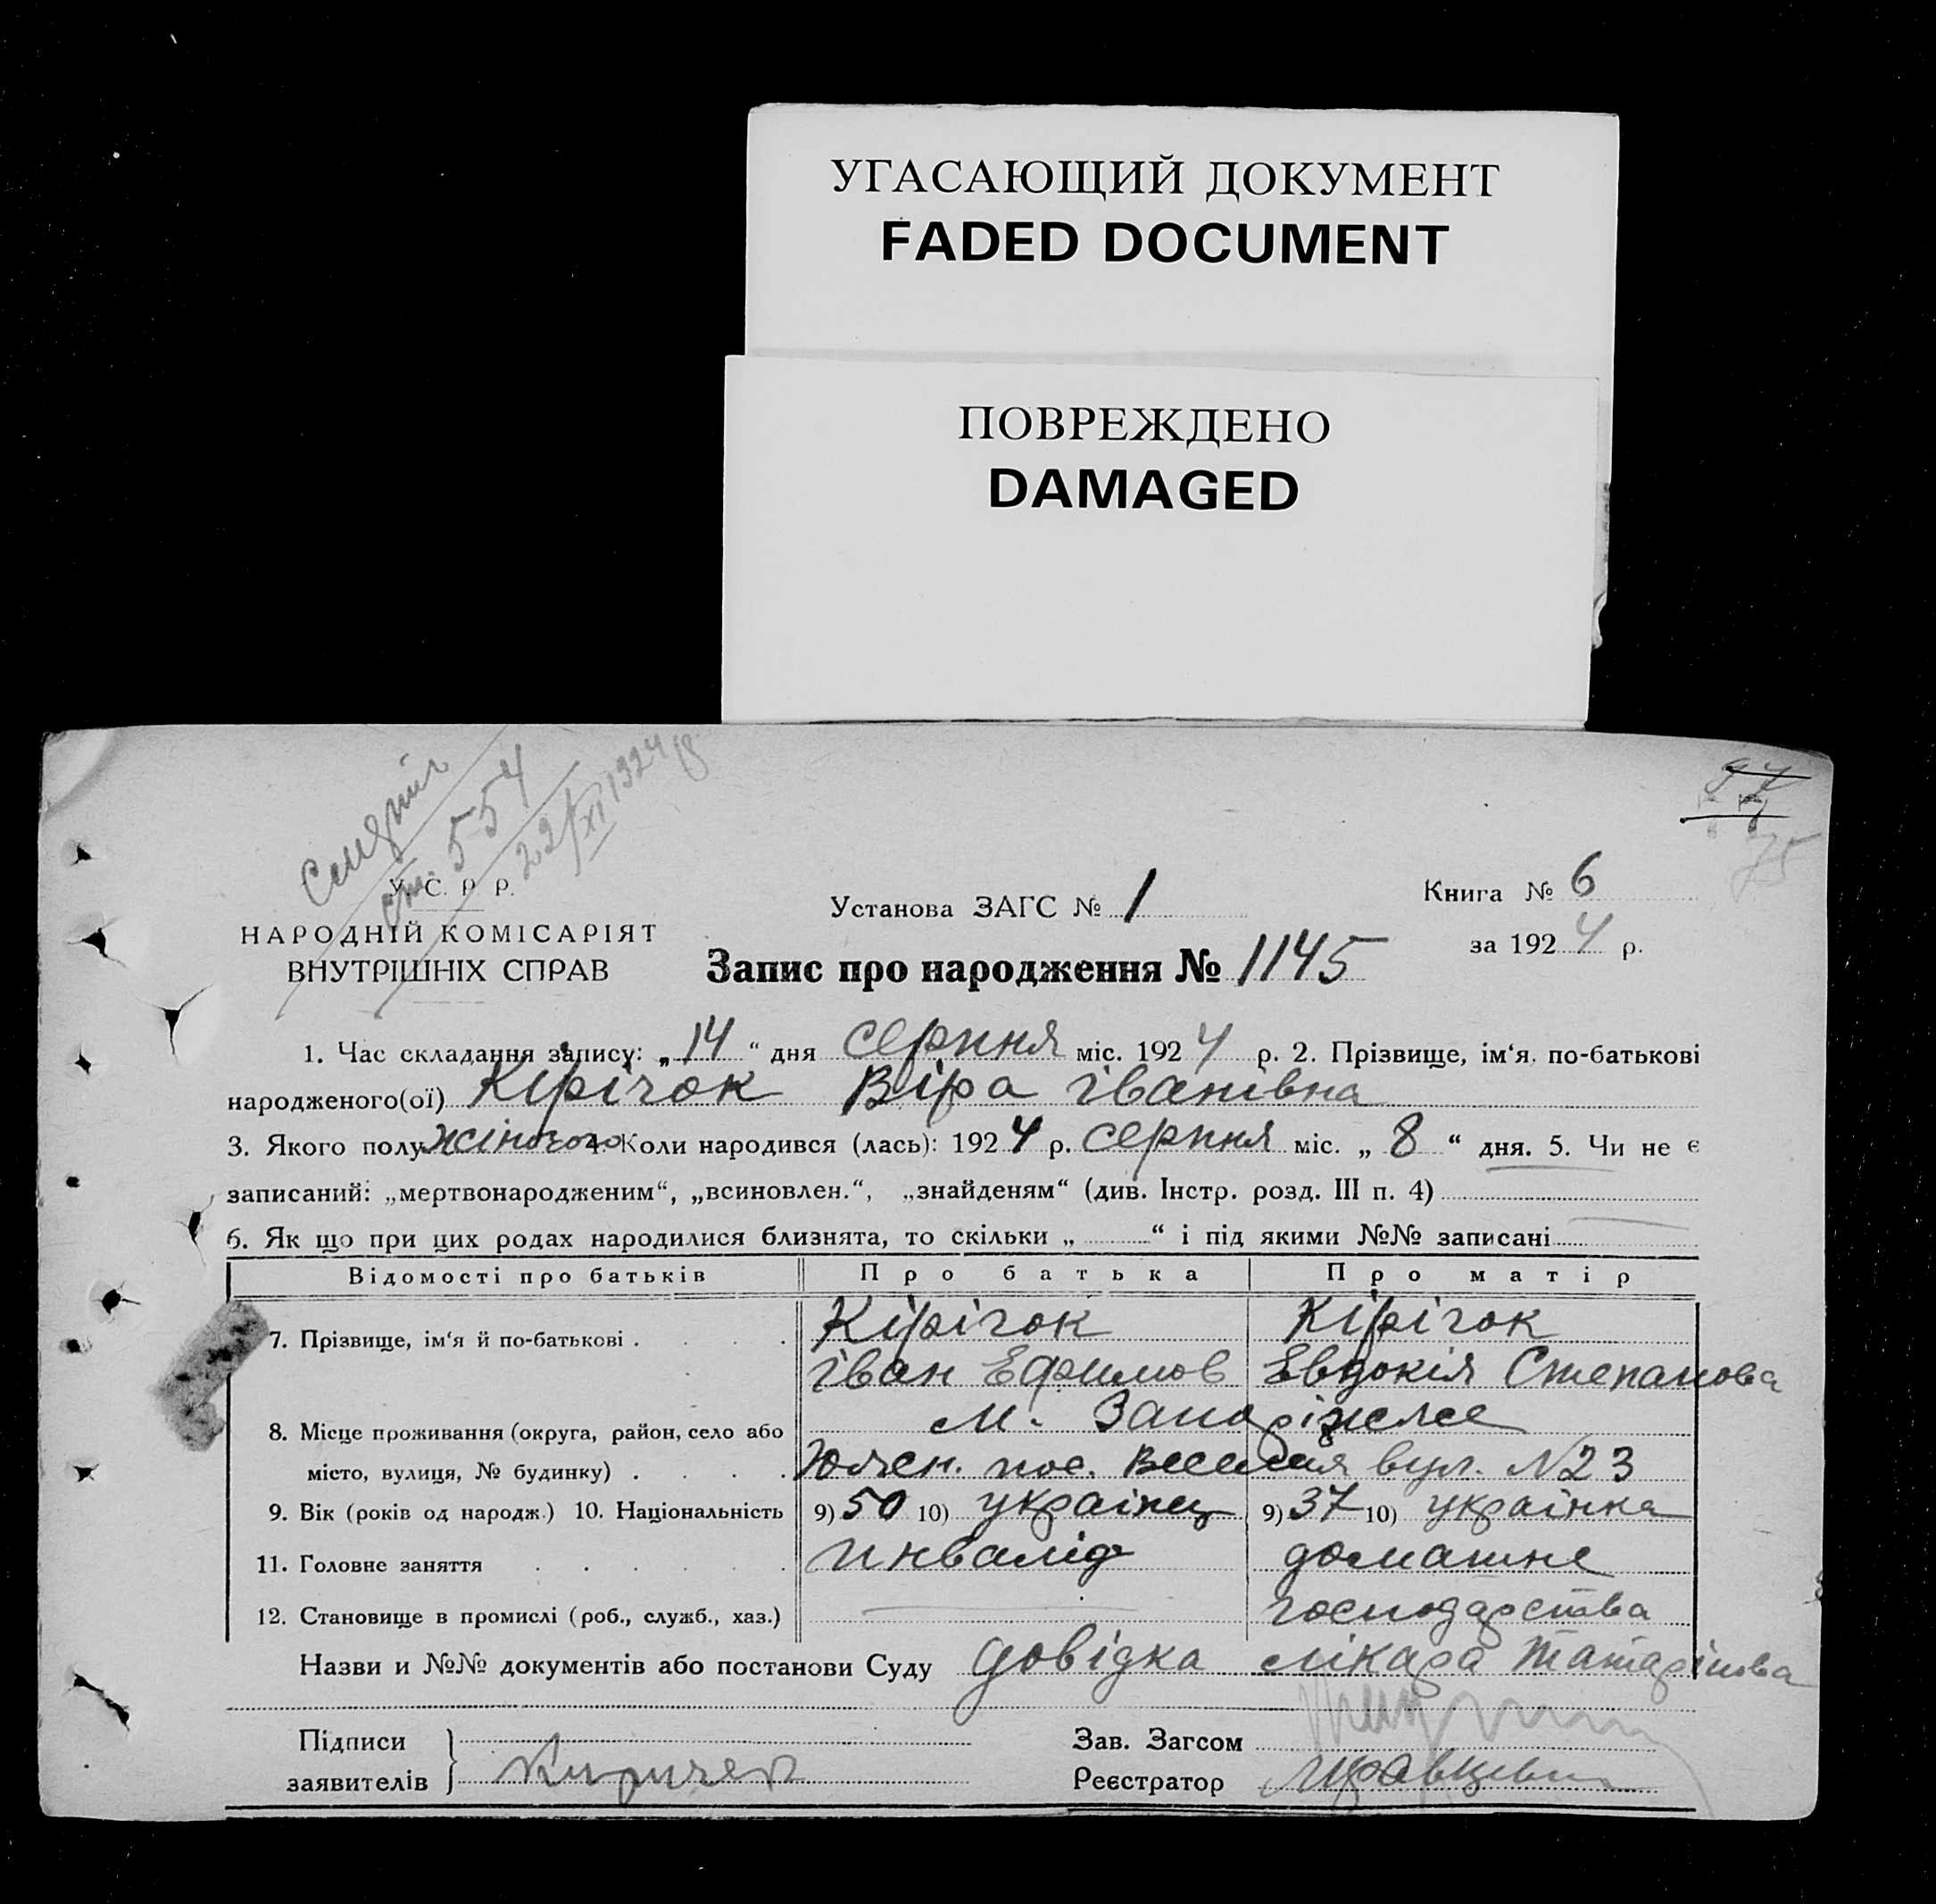 УГАСАЮЩИЙ ДОКУМЕНТ
FADED DOCUMENT
ПОВРЕЖДЕНО
DAMAGED
ст. 554
22/XI 1924
97
75
У. С. Р. Р.
НАРОДНІЙ КОМІСАРІЯТ
ВНУТРІШНІХ СПРАВ
Установа ЗАГС № 1
Книга № 6
за 1924 р.
Запис про народження № 1145
1. Час складання запису: „14“ дня серпня міс. 1924 р. 2. Прізвище, ім‘я, по-батькові
народженого(ої) Кірічок Віра Іванівна
3. Якого полу жіночого 4. Коли народився (лась): 1924 р. серпня міс. „8“ дня. 5. Чи не є
записаний: „мертвонародженим“, „всиновлен.“, „знайденям“ (див. Інстр. розд. III п. 4)
6. Як що при цих родах народилися близнята, то скільки „ “ і під якими №№ записані
Відомості про батьків Про батька Про матір
7. Прізвище, ім‘я й по-батькові Кірічок Кірічок
Іван Ефимов Евдокія Степанова
8. Місце проживання (округа, район, село або м. Запоріжже
місто, вулиця, № будинку) пос. Веселая вул. N23
9. Вік (років од народж.) 10. Національність 9) 50 10) украінец 9) 37 10) украінка
11. Головне заняття инвалід домашне
12. Становище в промислі (роб., служб., хаз.) господарства
Назви и №№ документів або постанови Суду довідка лікара Татарінова
Підписи
заявителів
Зав. Загсом
Реєстратор